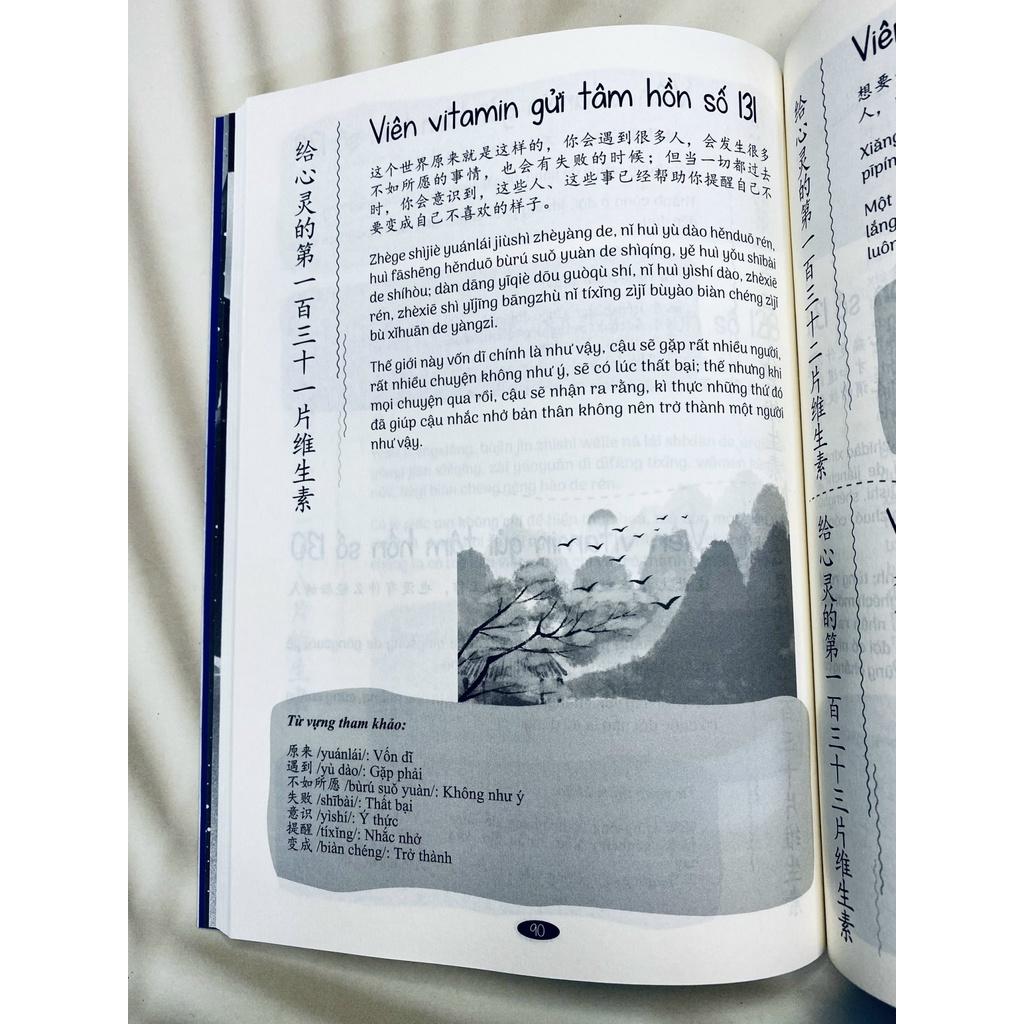 Viên vitamin gửi tâm hồn số 131
给心灵的第一百三十一片维生素
这个世界原来就是这样的，你会遇到很多人，会发生很多
不如所愿的事情，也会有失败的时候；但当一切都过去
时，你会意识到，这些人、这些事已经帮助你提醒自己不
要变成自己不喜欢的样子。
Zhège shìjiè yuánlái jiùshì zhèyàng de, nǐ huì yù dào hěnduō rén,
huì fāshēng hěnduō bùrú suǒ yuàn de shìqíng, yě huì yǒu shībài
de shíhòu; dàn dāng yīqiè dōu guòqù shí, nǐ huì yìshí dào, zhèxiē
rén, zhèxiē shì yǐjīng bāngzhù nǐ tíxǐng zìjǐ bùyào biàn chéng zìjǐ
bù xǐhuān de yàngzi.
Thế giới này vốn dĩ chính là như vậy, cậu sẽ gặp rất nhiều người,
rất nhiều chuyện không như ý, sẽ có lúc thất bại; thế nhưng khi
mọi chuyện qua rồi, cậu sẽ nhận ra rằng, kì thực những thứ đó
đã giúp cậu nhắc nhở bản thân không nên trở thành một người
như vậy.
Từ vựng tham khảo:
原来 /yuánlái/: Vốn dĩ
遇到 /yù dào/: Gặp phải
不如所愿 /bùrú suǒ yuàn/: Không như ý
失败 /shībài/: Thất bại
意识 /yìshí/: Ý thức
提醒 /tíxǐng/: Nhắc nhở
变成 /biàn chéng/: Trở thành
90
给心灵的第一百三十二片维生素
想要
人，
Xiǎng
Một
luôn
给心灵的第一百三十三片维生素